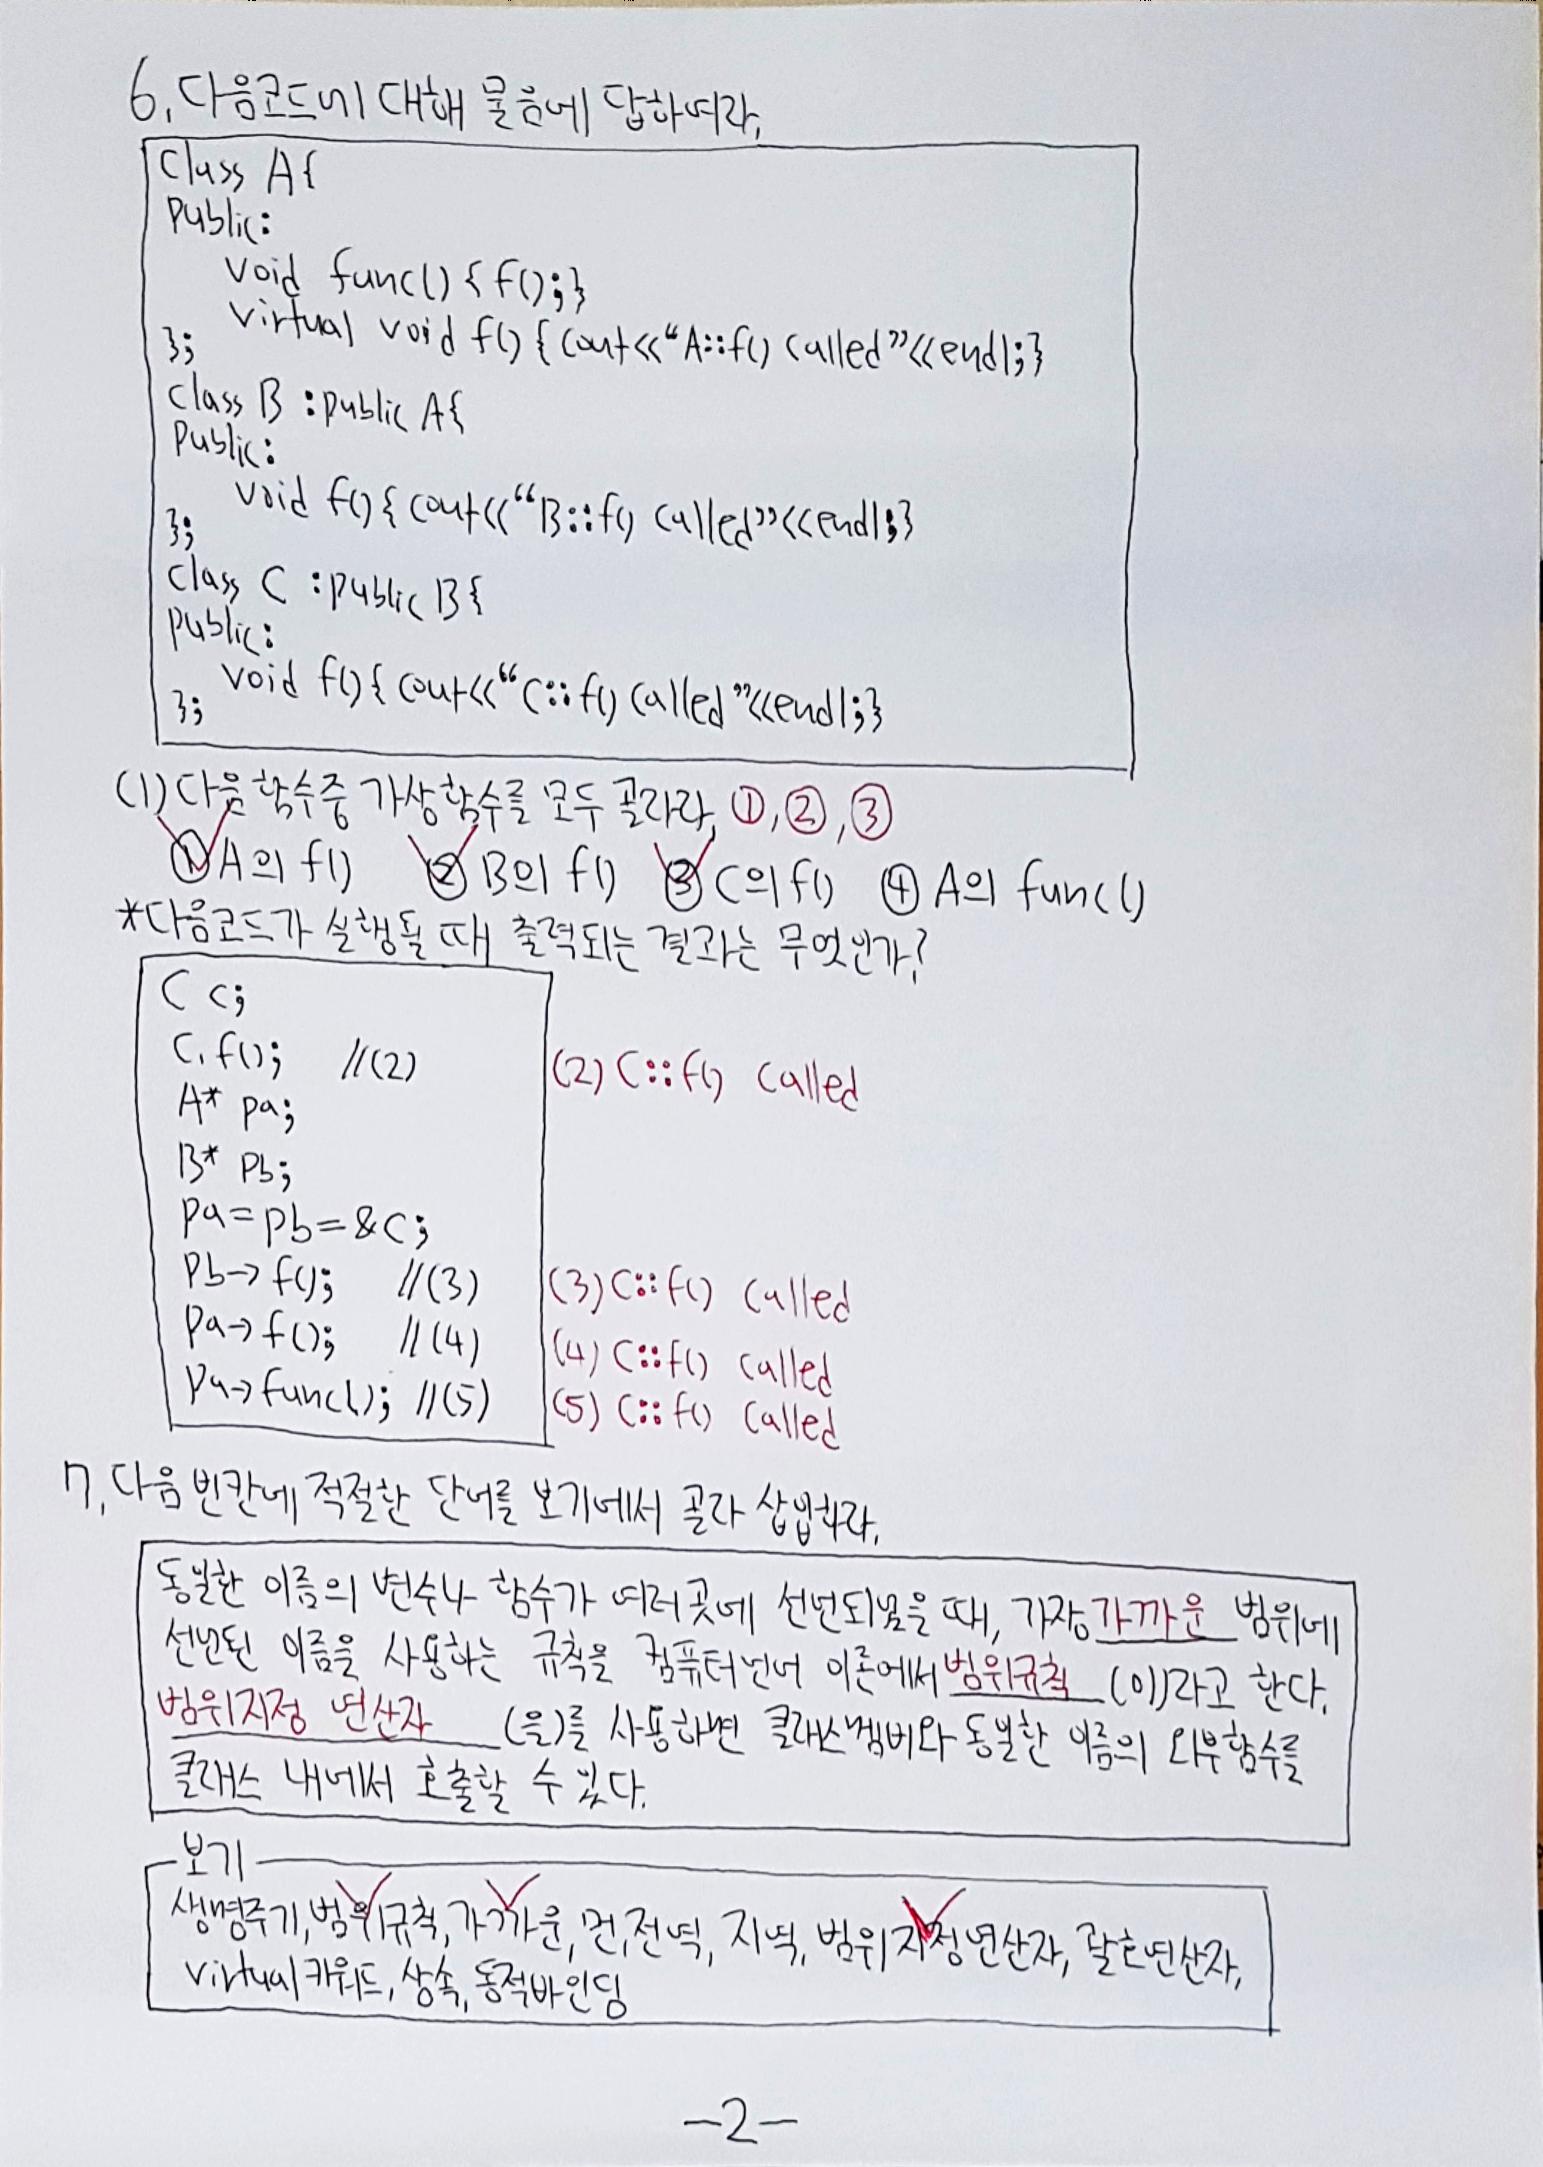 6. 다음코드에 대해 물음에 답하여라.
class A{
public:
void func() { f(); }
virtual void f() { cout<<"A::f() called"<<endl; }
};
class B : public A{
public:
void f() { cout<<"B::f() called"<<endl; }
};
class C : public B{
public:
void f() { cout<<"C::f() called"<<endl; }
};
(1) 다음 함수중 가상함수를 모두 골라라. ①, ②, ③
① A의 f() ② B의 f() ③ C의 f() ④ A의 func()
*다음코드가 실행될 때 출력되는 결과는 무엇인가?
C c;
c.f(); //(2) (2) C::f() called
A* pa;
B* pb;
pa=pb=&c;
pb->f(); //(3) (3) C::f() called
pa->f(); //(4) (4) C::f() called
pa->func(); //(5) (5) C::f() called
7. 다음 빈칸에 적절한 단어를 보기에서 골라 삽입하라.
동일한 이름의 변수나 함수가 여러곳에 선언되었을 때, 가장 가까운 범위에
선언된 이름을 사용하는 규칙을 컴퓨터언어 이론에서 범위규칙 (이)라고 한다.
범위지정 연산자 (을)를 사용하면 클래스멤버와 동일한 이름의 외부함수를
클래스 내에서 호출할 수 있다.
보기
생명주기, 범위규칙, 가까운, 먼, 전역, 지역, 범위지정연산자, 괄호연산자,
virtual키워드, 상속, 동적바인딩
-2-